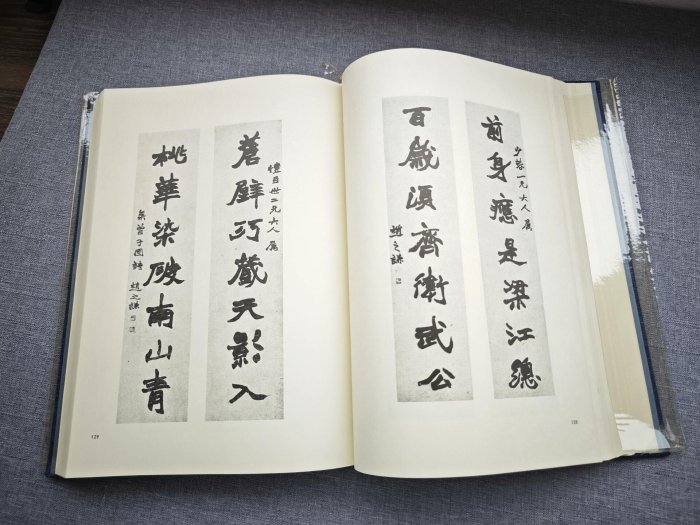 前身應是梁江總
一兄大人屬
百歲須齊衛武公
趙之謙
128
蒼壁巧藏天影入
世二兄大人屬
桃華染破南山青
集曾子固詩 趙之謙
129